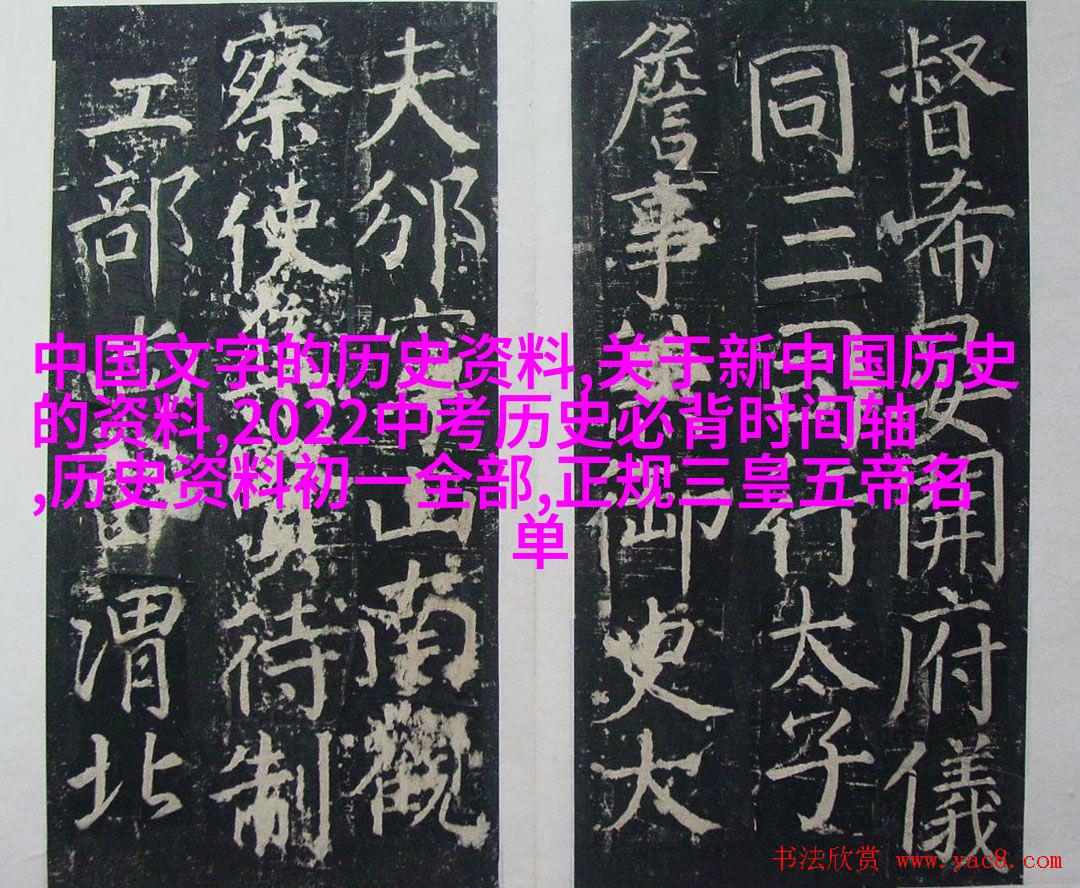 中国文字的历史资料,关于新中国历史
的资料,2022中考历史必背时间轴
,历史资料初一全部,正规三皇五帝名
单
督希開府儀
同三司行太子
詹事御史大
夫邠寧山南觀
察使待制
工部尚書渭北
书法欣赏 www.yac8.com